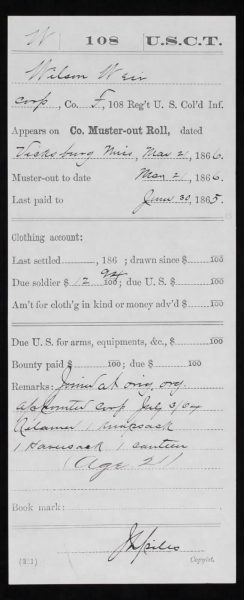 W | 108 | U.S.C.T.
Wilson Weir
Corp, Co. F, 108 Reg't U. S. Col'd Inf.
Appears on Co. Muster-out Roll, dated
Vicksburg Miss, Mar 21, 1866.
Muster-out to date Mar 21, 1866.
Last paid to June 30, 1865.
Clothing account:
Last settled , 186 ; drawn since $ 100
Due soldier $ 12 94 100; due U. S. $ 100
Am't for cloth'g in kind or money adv'd $ 100
Due U. S. for arms, equipments, &c., $ 100
Bounty paid $ 100; due $ 100
Remarks: Joined at orig org
appointed Corp July 3/64
Retained 1 Knapsack
1 Haversack 1 Canteen
Age 21
Book mark:
Copyist.